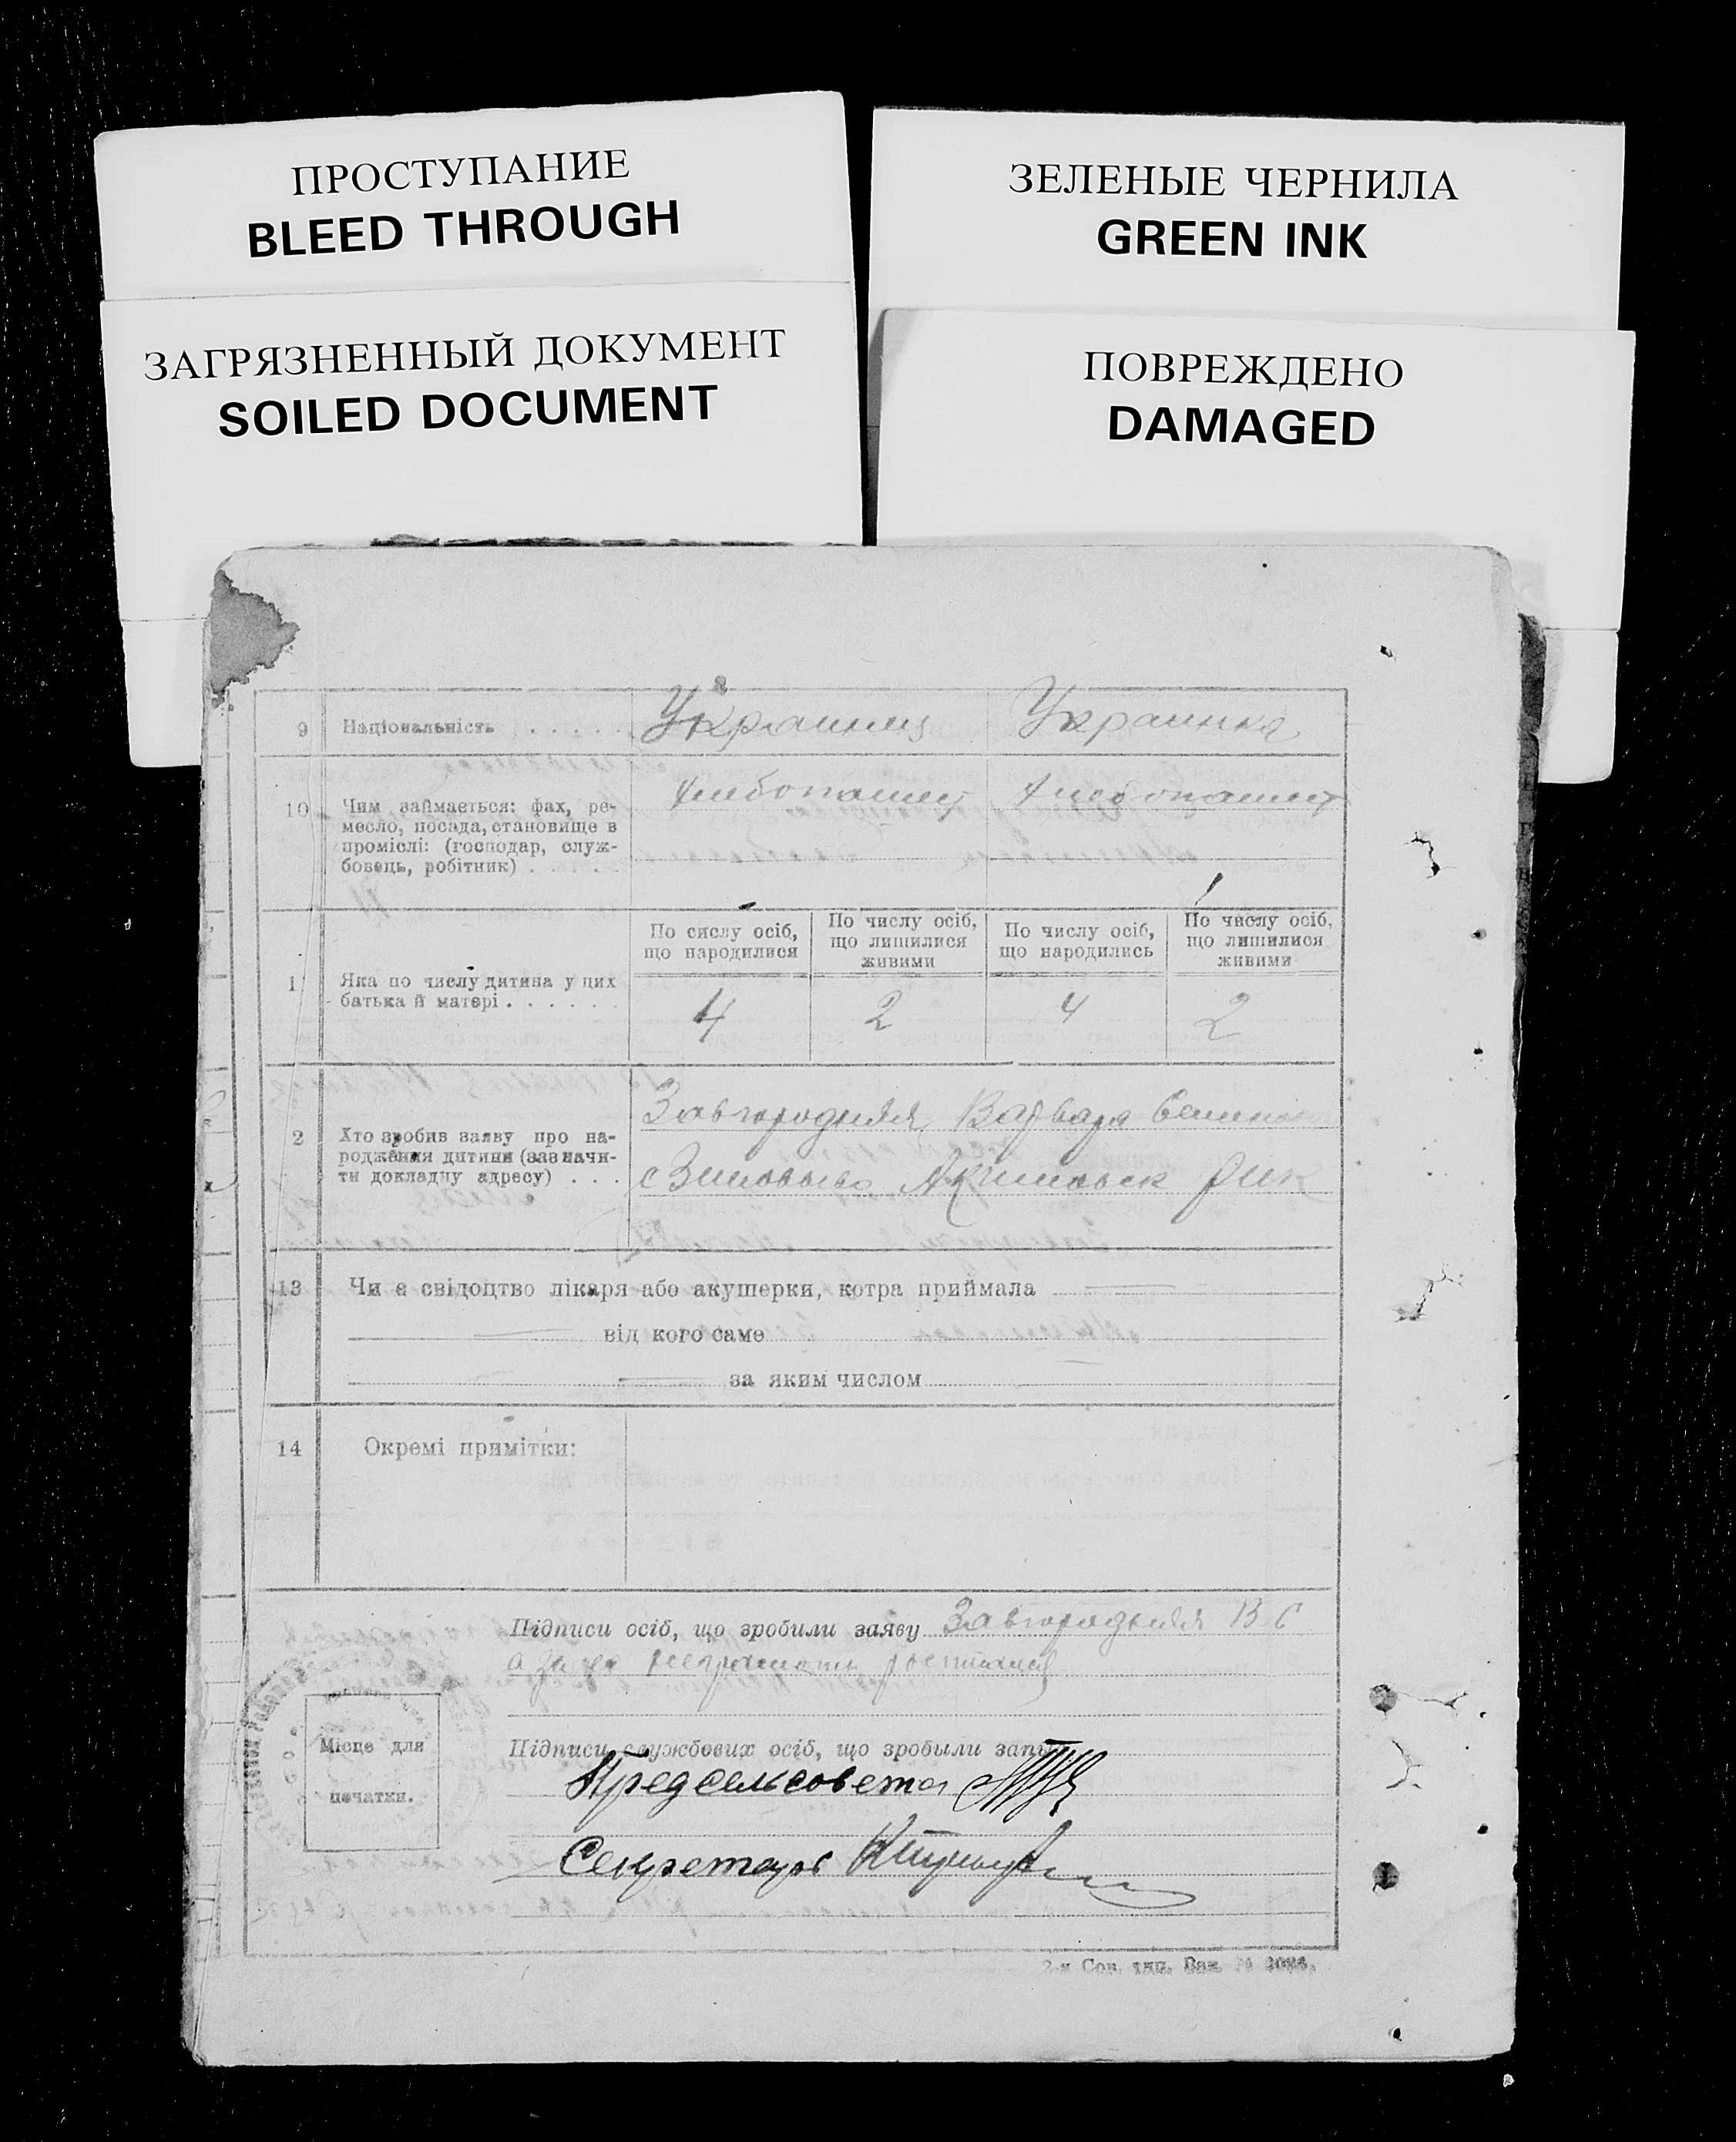 ПРОСТУПАНИЕ
BLEED THROUGH
ЗЕЛЕНЫЕ ЧЕРНИЛА
GREEN INK
ЗАГРЯЗНЕННЫЙ ДОКУМЕНТ
SOILED DOCUMENT
ПОВРЕЖДЕНО
DAMAGED
9 Національність . . . . . Украинец Украинка
10 Чим займається: фах, ре-
месло, посада, становище в
проміслі: (господар, служ-
бовець, робітник) . . . . .
Хлебопашец Хлебопашец
1 Яка по числу дитина у цих
батька й матері . . . . . .
По сислу осіб,
що народилися
По числу осіб,
що лишилися
живими
По числу осіб,
що народились
По числу осіб,
що лишилися
живими
4 2 4 2
2 Хто зробив заяву про на-
родження дитини (зазначи-
ти докладну адресу) . . .
Завгородняя Варвара
с Зиновьево
13 Чи є свідоцтво лікаря або акушерки, котра приймала
від кого саме
за яким числом
14 Окремі примітки:
Підписи осіб, що зробили заяву Завгородняя В С
а за ее неграмотн
Місце для
печатки.
Підписи службових осіб, що зробыли запис
Предсельсовета
Секретарь
2-я Сов. тип. Зак. №